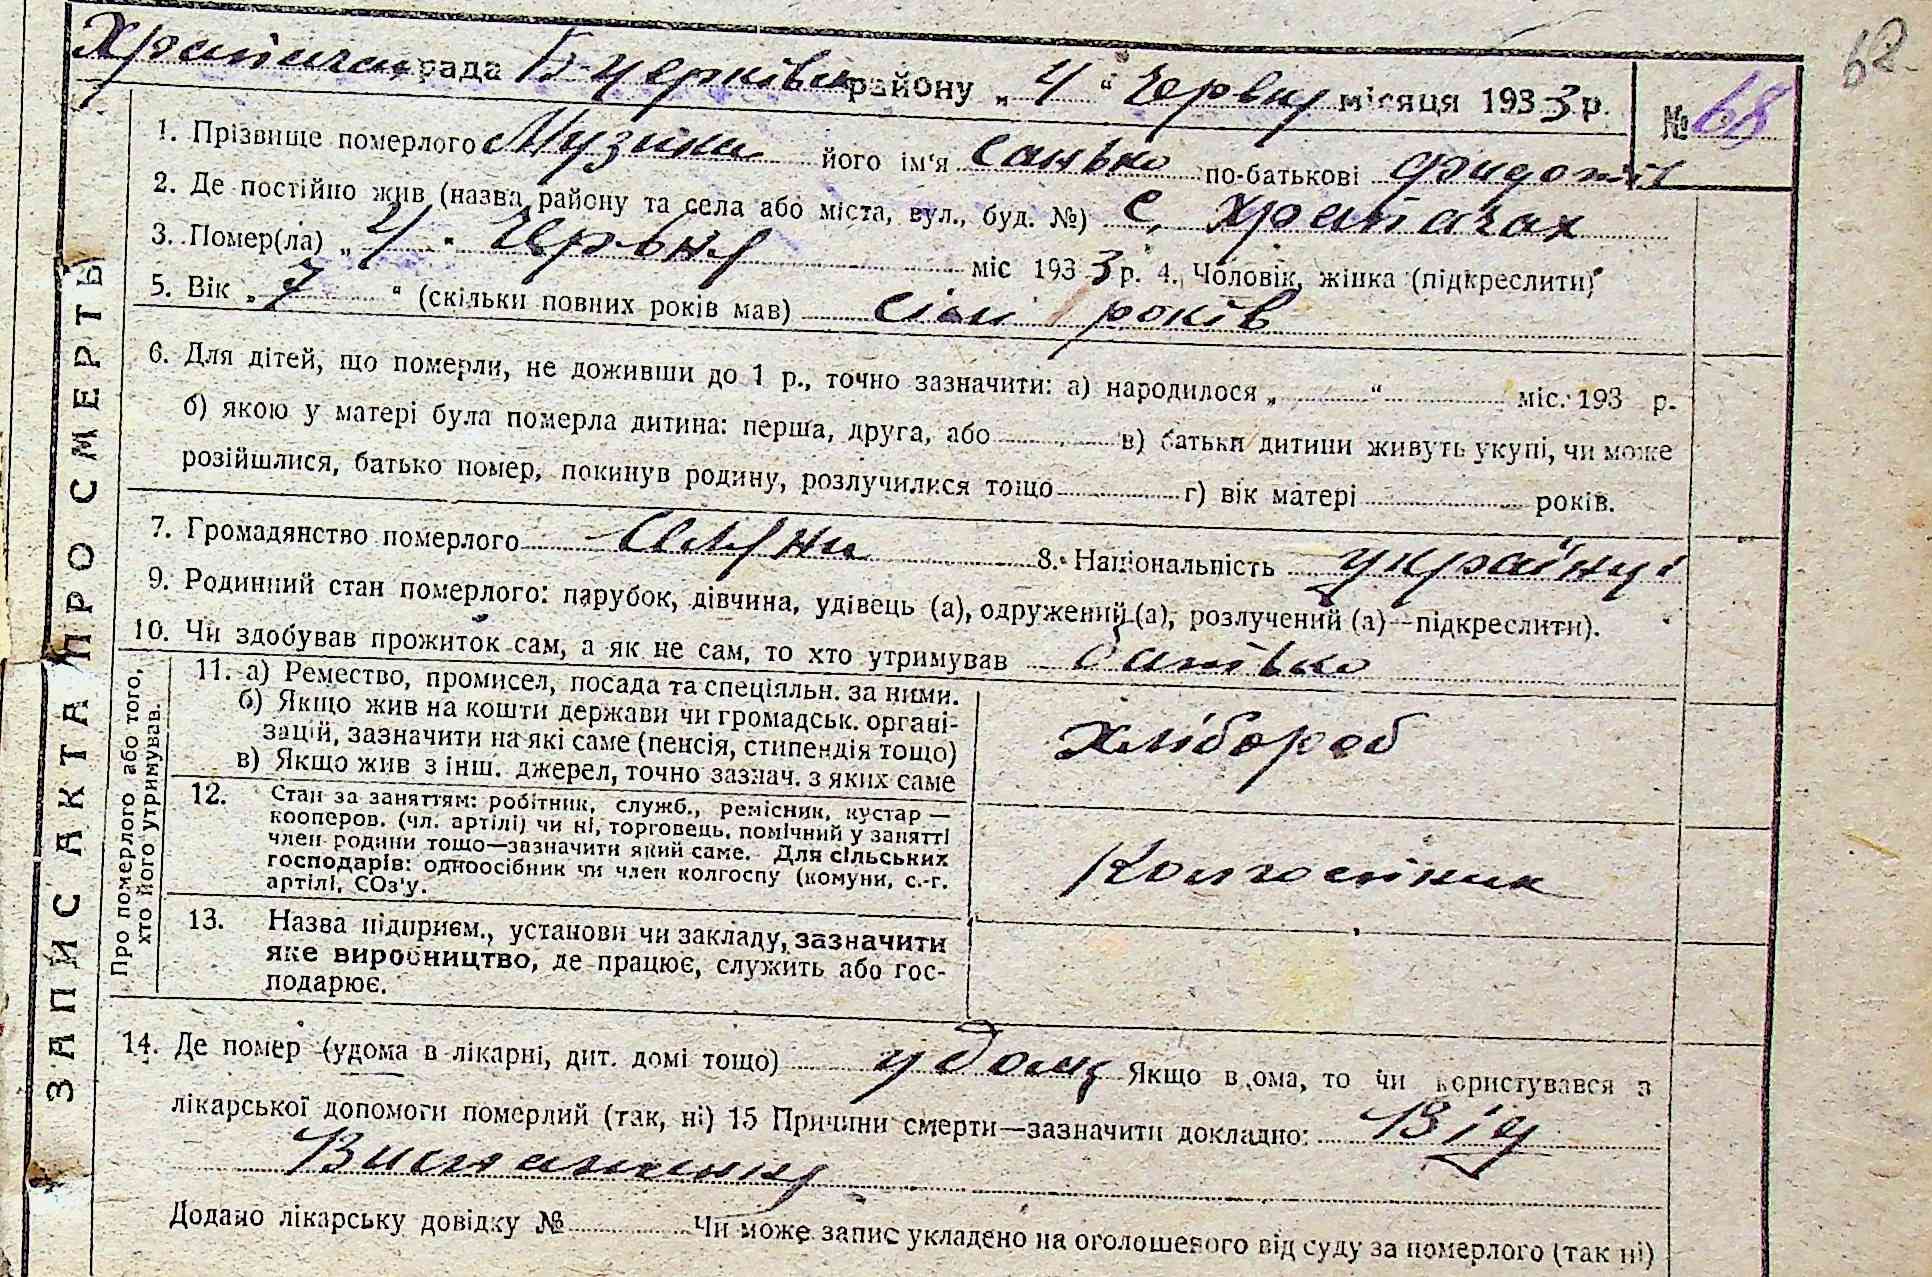 62.
Храпачан рада Б-Церківськ району „ 4 “ Червня місяця 193 3 р. № 68
1. Прізвище померлого Музика його ім'я Санько по-батькові
2. Де постійно жив (назва району та села або міста, вул., буд. №) с. Храпачах
3. Помер(ла) „ 4 “ Червня міс 193 3 р. 4. Чоловік, жінка (підкреслити)
5. Вік „ 7 “ (скільки повних років мав) сім років
6. Для дітей, що померли, не доживши до 1 р., точно зазначити: а) народилося „ “ міс. 193 р.
б) якою у матері була померла дитина: перша, друга, або в) батьки дитини живуть укупі, чи може
розійшлися, батько помер, покинув родину, розлучилися тощо г) вік матері років.
7. Громадянство померлого 8. Національність україну
9. Родинний стан померлого: парубок, дівчина, удівець (а), одружений (а), розлучений (а)—підкреслити).
10. Чи здобував прожиток сам, а як не сам, то хто утримував батько
11. а) Ремество, промисел, посада та спеціяльн. за ними.
б) Якщо жив на кошти держави чи громадськ. органі-
зацій, зазначити на які саме (пенсія, стипендія тощо)
в) Якщо жив з інш. джерел, точно зазнач. з яких саме
Хлібороб
12. Стан за заняттям: робітник, служб., ремісник, кустар —
кооперов. (чл. артілі) чи ні, торговець, помічний у занятті
член родини тощо—зазначити який саме. Для сільських
господарів: одноосібник чи член колгоспу (комуни, с.-г.
артілі, СОз'у.
Колгоспник
13. Назва підприєм., установи чи закладу, зазначити
яке виробництво, де працює, служить або гос-
подарює.
14. Де помер (удома в лікарні, дит. домі тощо) у дому Якщо вдома, то чи користувався з
лікарської допомоги померлий (так, ні) 15 Причини смерти—зазначити докладно: Від
Виснаження
Додано лікарську довідку № Чи може запис укладено на оголошеного від суду за померлого (так ні)
ЗАПИС АКТА ПРО СМЕРТЬ
Про померлого або того,
хто його утримував.